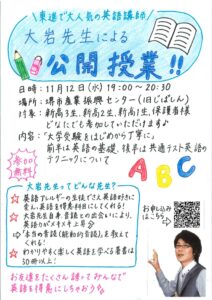 東進で大人気の英語講師
大岩先生による
公開授業!!
日時:11月12日(水)19:00〜20:30
場所:堺市産業振興センター(旧じばしん)
対象:新高3生、新高2生、新高1生、保護者様
どなたでも参加していただけます♪
内容:『大学受験をはじめから丁寧に』
前半は英語の基礎、後半は共通テスト英語の
テクニックについて
参加無料
ABC
大岩先生ってどんな先生?
英語アレルギーの生徒でさえ英語好きに
変え、英語を得意科目にしてくれる!
大岩先生自身、音読との出会いにより、
英語力がメキメキ上昇
→本当の音読(能動的音読)を教えて
くれる!
わかりやすく楽しく英語を学べる著書は
30冊以上!
お申し込み
はこちら
お友達をたくさん誘ってみんなで
英語を得意にしちゃおう